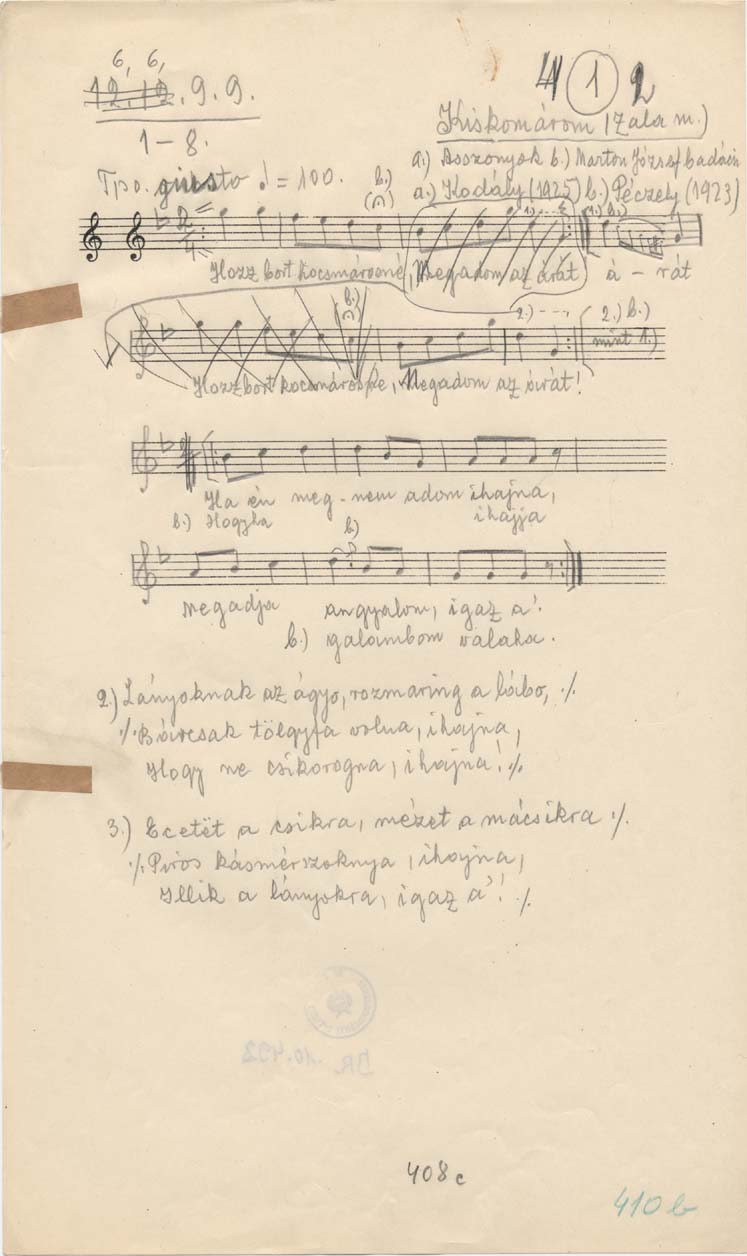 6, 6,
12.12.9.9.
1-8.
1 2
Kiskomárom (Zala m.)
a.) Asszonyok b.) Marton József
Tpo. giusto ♩=100. b.)
a.) Kodály (1925) b.) Péczely (1923)
2/4
Hozz bort kocsmárosné, Megadom az árát á-rát
b.) 2.) 2.) b.)
mint 1.)
Hozz bort kocsmárosné, Megadom az árát!
Ha én meg-nem adom ihajna,
b.) Hogyha ihajja
b.)
Megadja angyalom, igaz a'!
b.) galambom valaha.
2.) Lányoknak az ágyo, rozmaring a lábo, ./.
./. Bárcsak tölgyfa volna, ihajna,
Hogy ne csikorogna, ihajna! ./.
3.) Ecetët a csikra, mézet a mácsikra ./.
./. Piros kásmérszoknya, ihajna,
Illik a lányokra, igaz a'! ./.
BR 10.492
408c
410b